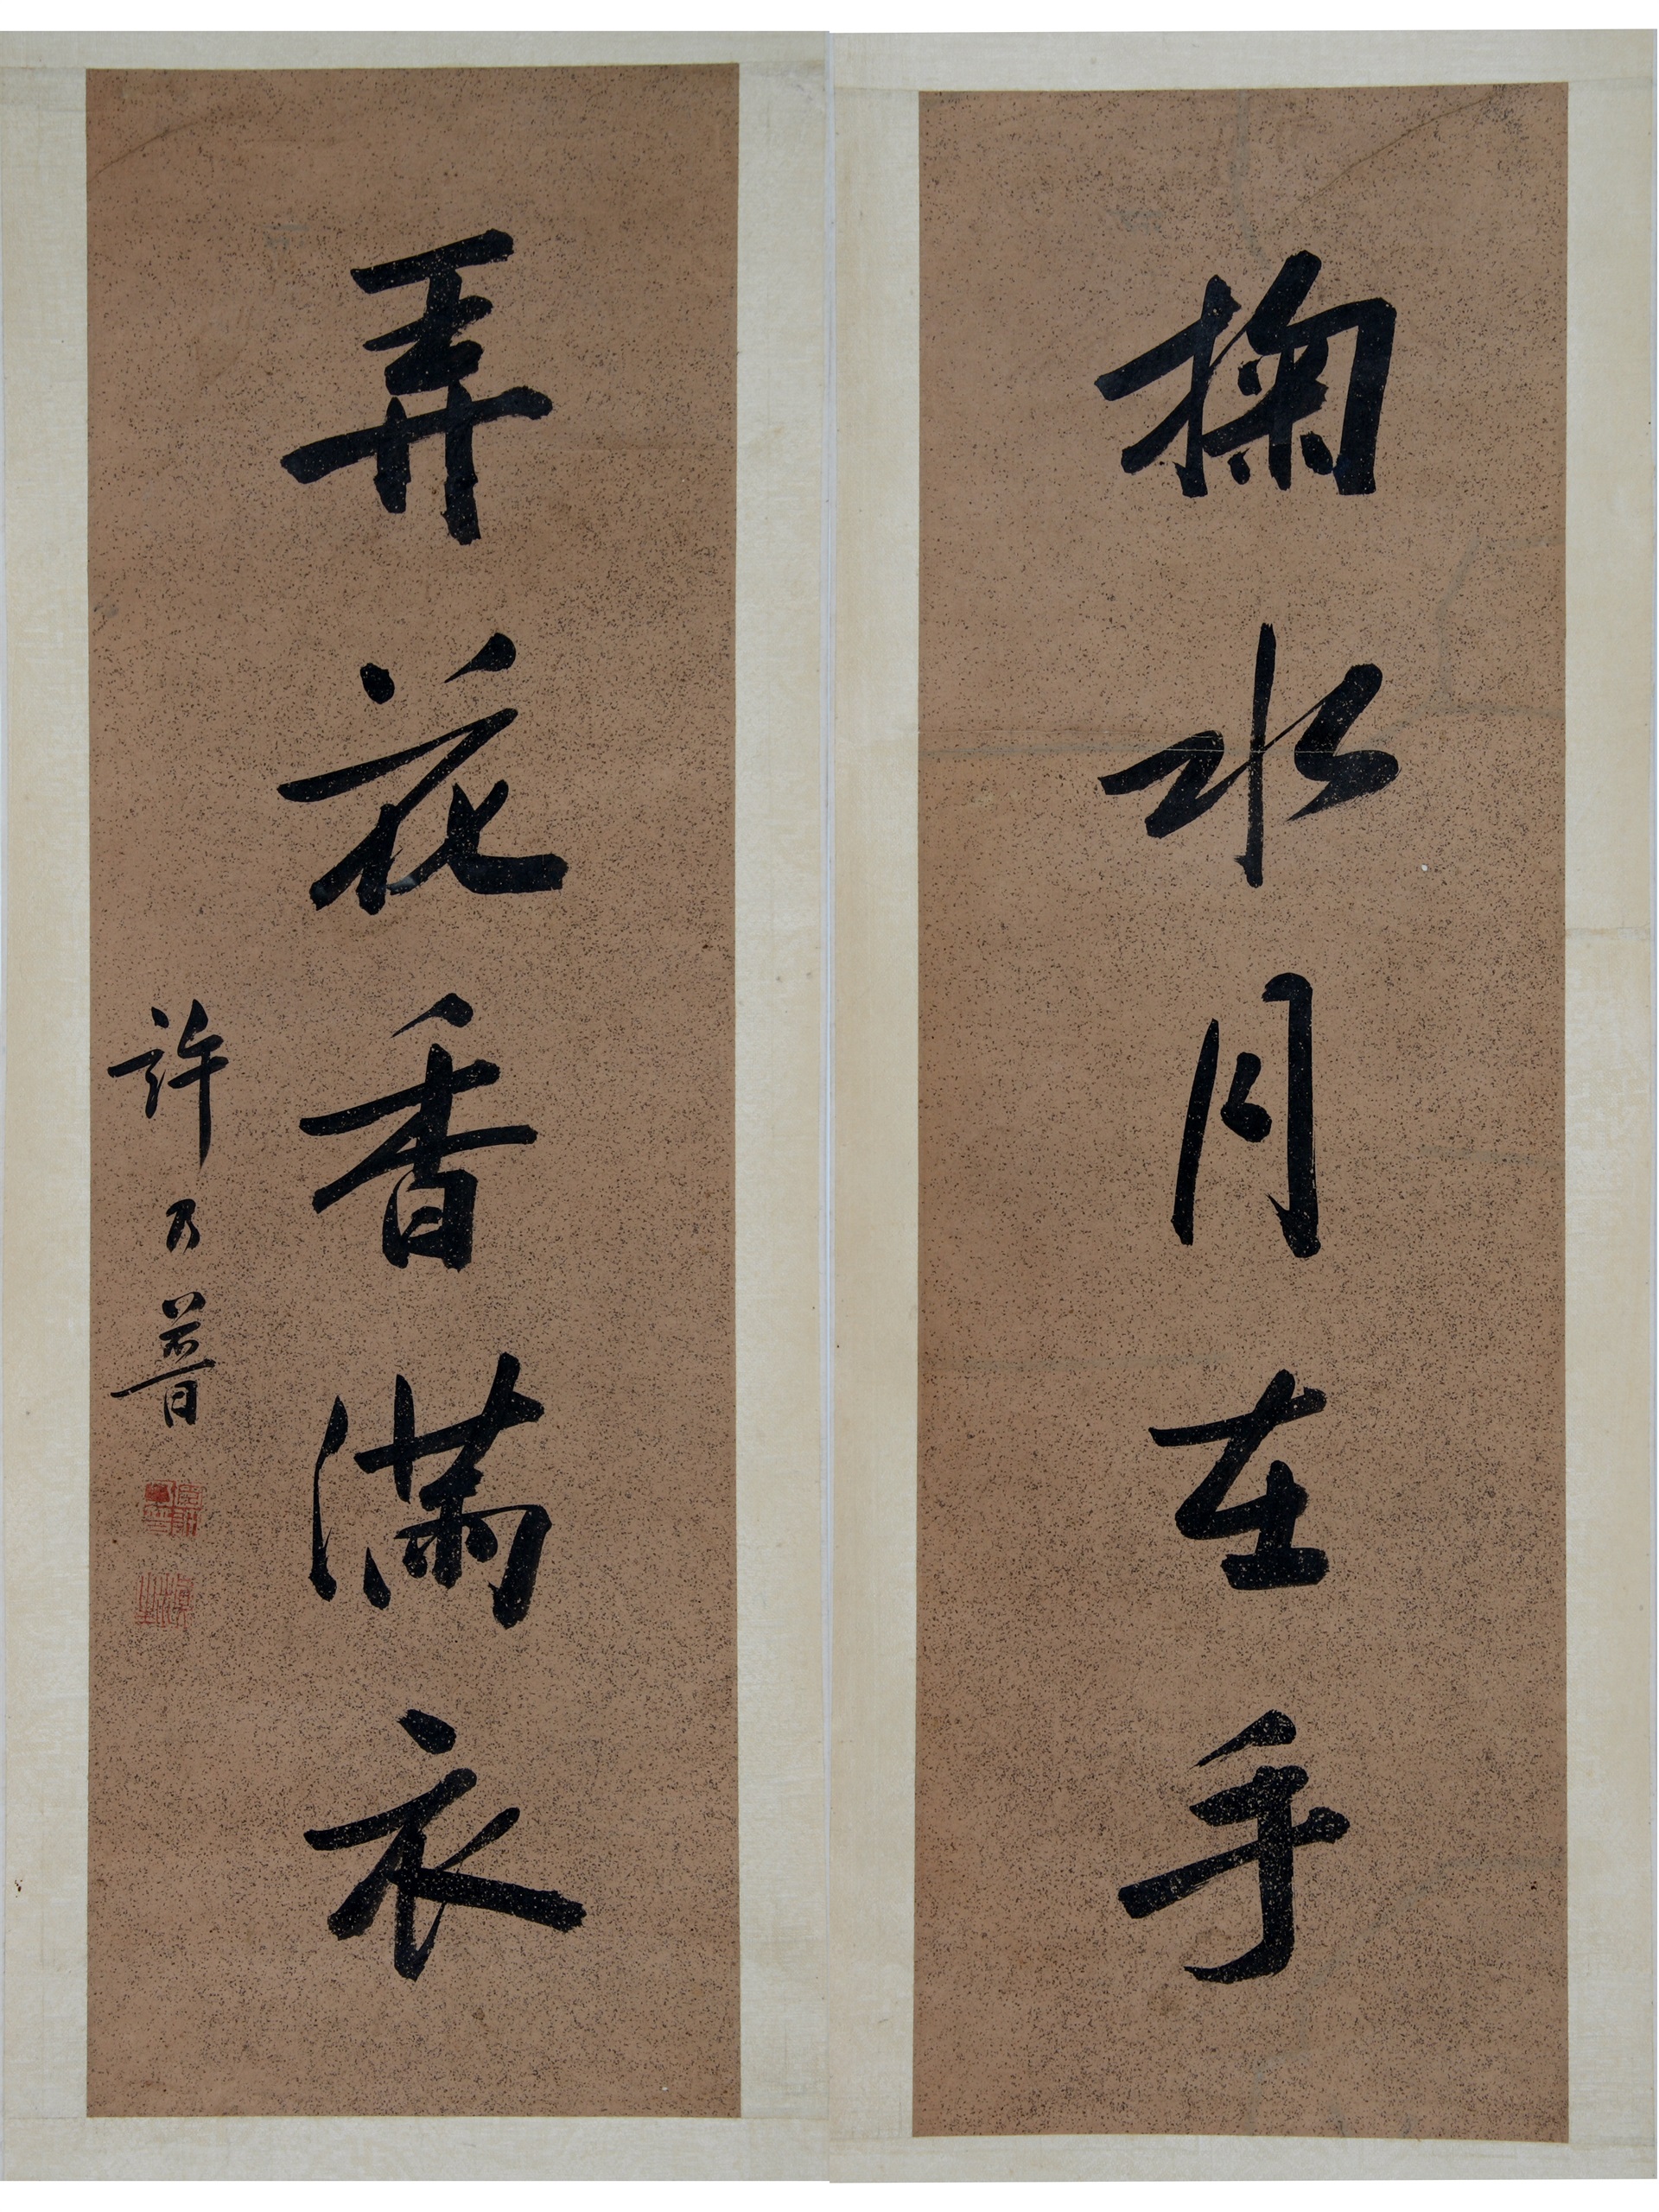 掬水月在手
弄花香滿衣
許乃普